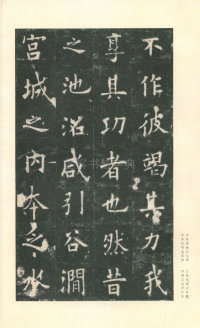 不作彼竭其力我
享其功者也然昔
之池沼咸引谷澗
宮城之內本乏水